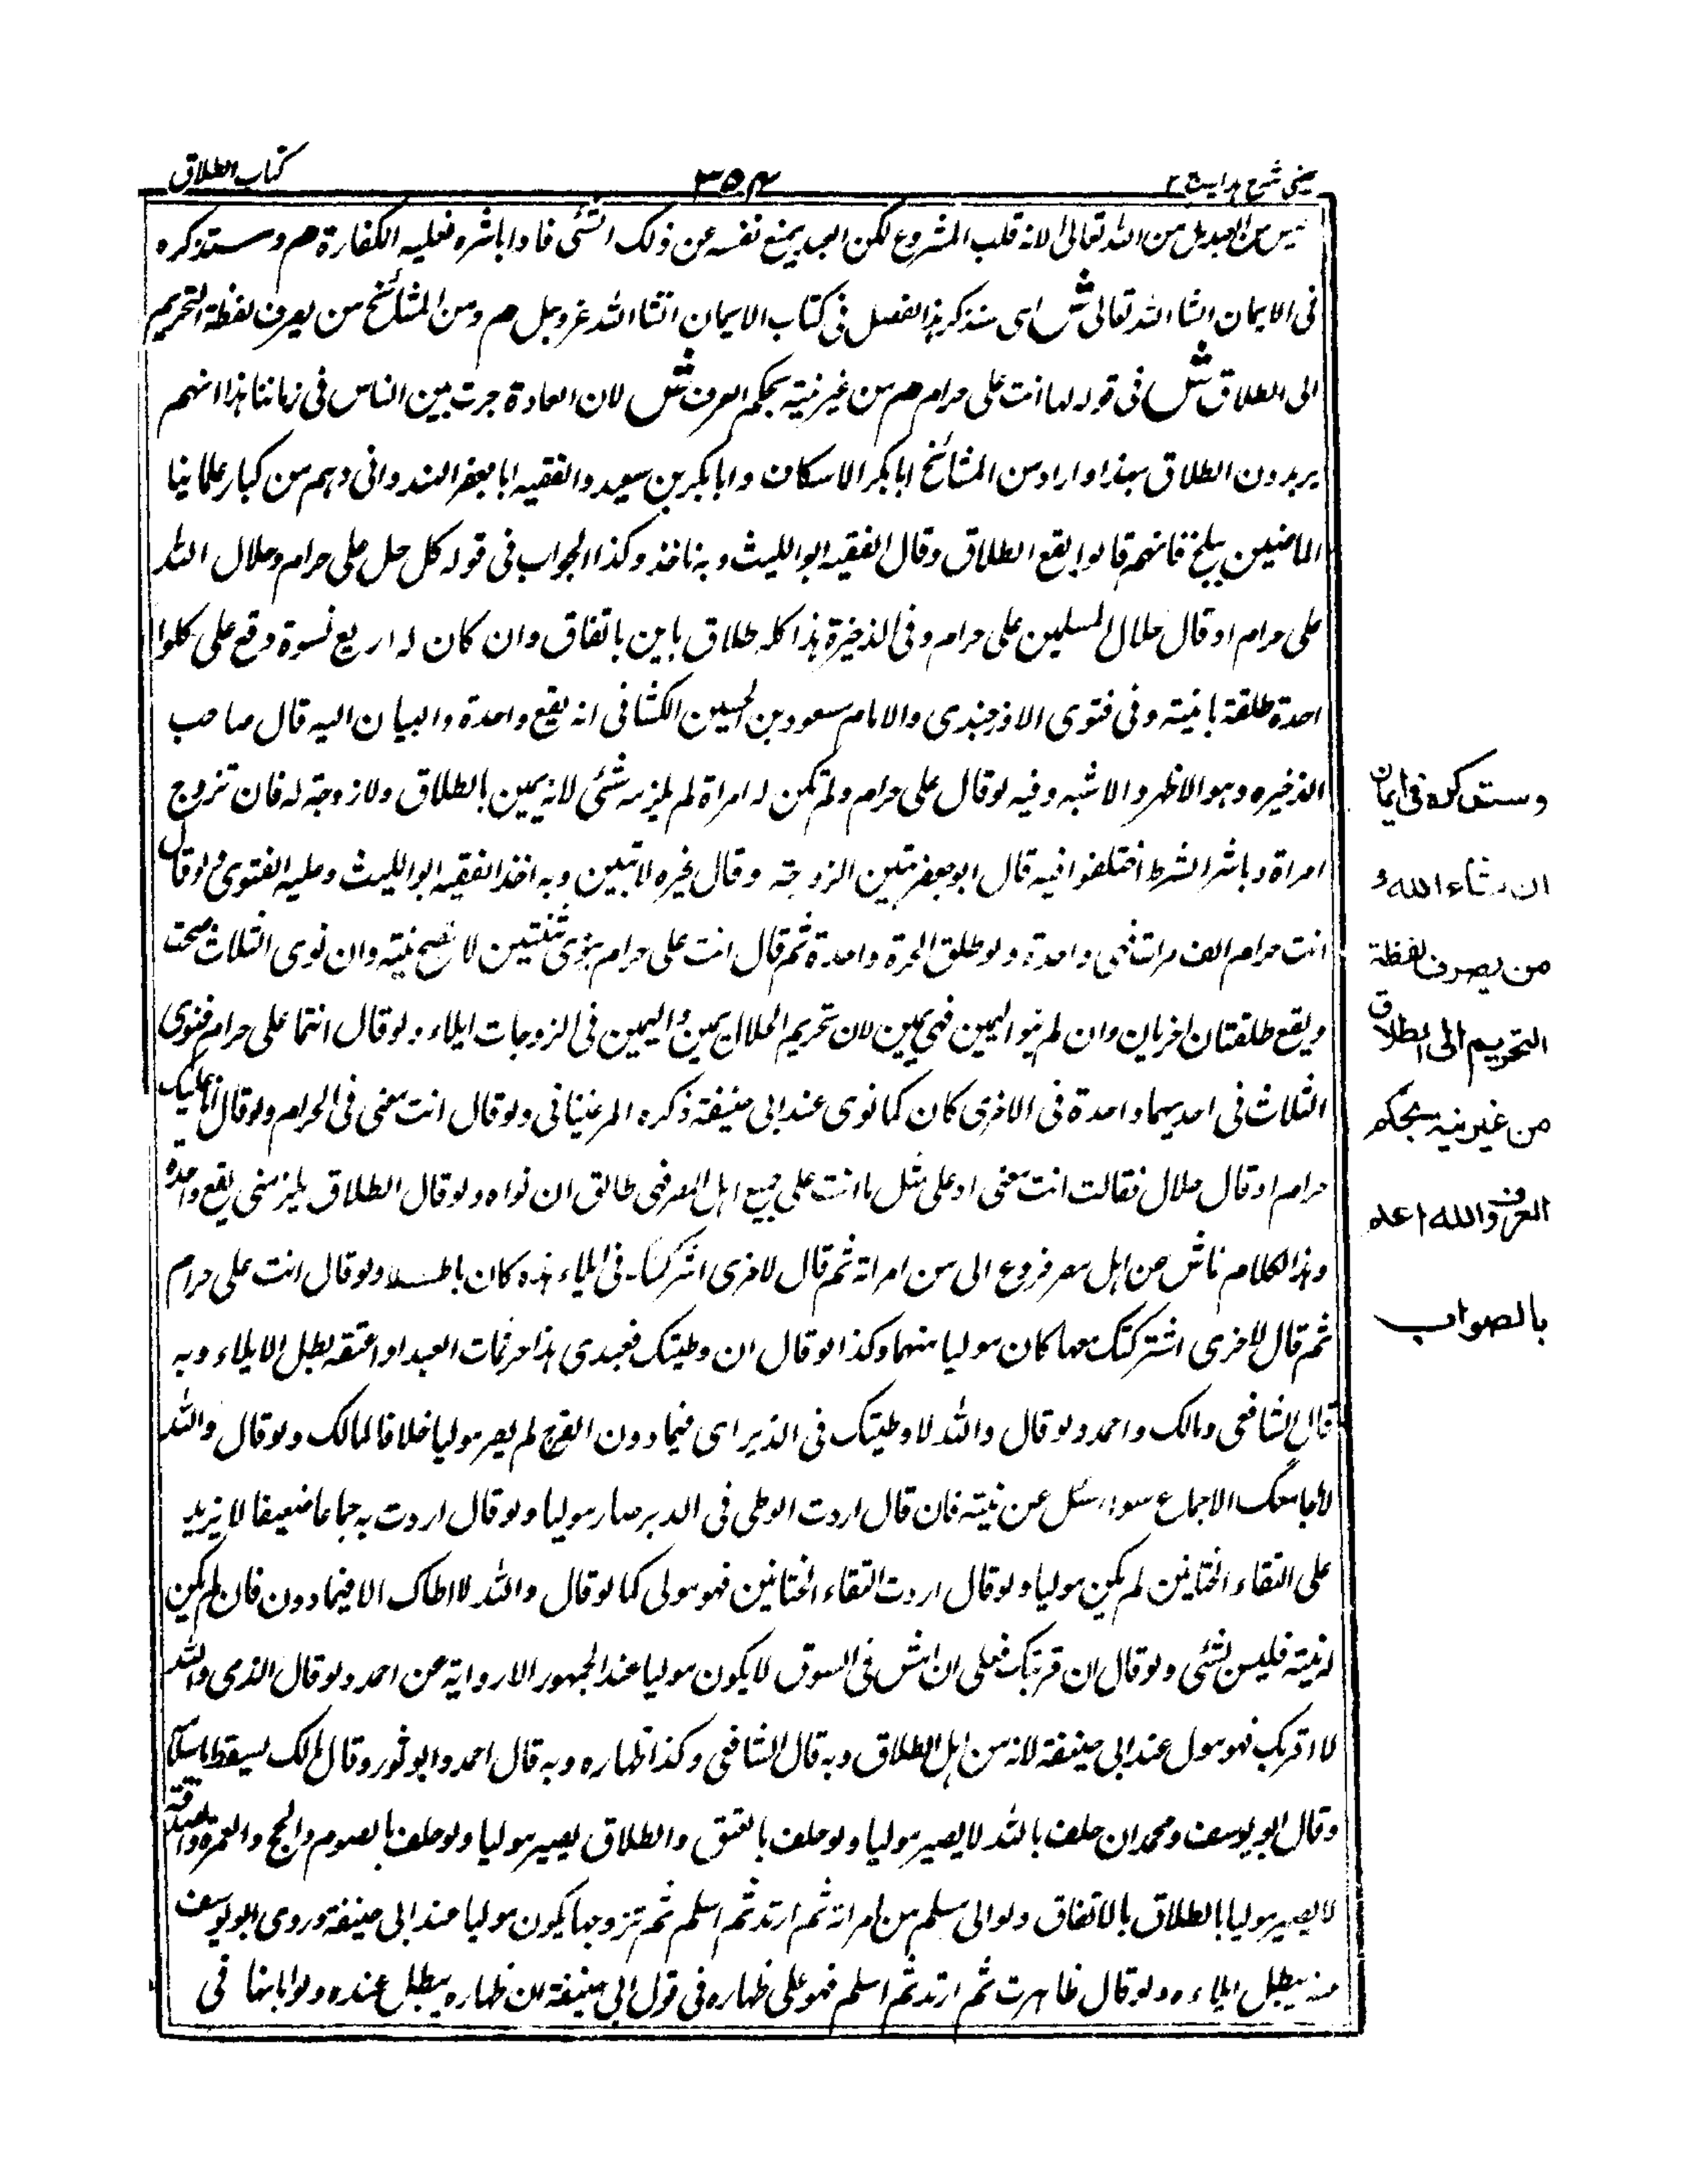 عینی شرح ہدایہ ج ۲
۳۵۴
کتاب الطلاق
لیس من العبد بل من اللہ تعالی لانہ قلب المشروع لکن العبد یمنع نفسہ عن ذلک الشئی فاذا باشرہ فعلیہ الکفارۃ م وستذکرہ
فی الایمان انشاء اللہ تعالی ش ای سنذکر ہذا الفصل فی کتاب الایمان انشاء اللہ عزوجل م ومن المشائخ من یصرف لفظۃ التحریم
الی الطلاق ش فی قولہ لہا انت علی حرام م من غیر نیتہ بحکم العرف ش لان العادۃ جرت بین الناس فی زماننا ہذا انہم
یریدون الطلاق بہذا واراد من المشائخ ابابکر الاسکاف وابابکر بن سعید والفقیہ ابا جعفر الہندوانی وہم من کبار علماینا
الماضین ببلخ فانہم قالوا یقع الطلاق وقال الفقیہ ابو اللیث وبہ ناخذ وکذا الجواب فی قولہ کل حل علی حرام وحلال اللہ
علی حرام او قال حلال المسلمین علی حرام وفی الذخیرۃ ہذا کلہ طلاق باین باتفاق وان کان لہ اربع نسوۃ وقع علی کل وا
احدۃ طلقۃ بائنیتہ وفی فتوی الاوزجندی والامام مسعود بن الحسین الکشانی انہ یقع واحدۃ والبیان الیہ قال صاحب
الذخیرہ وہو الاظہر والاشبہ وفیہ لو قال علی حرام ولم تکن لہ امراۃ لم یلزمہ شئی لانہ یمین بالطلاق ولا زوجۃ لہ فان تزوج
امراۃ وباشر الشرط اختلفوا فیہ قال ابو جعفر تبین الزوجتہ وقال غیرہ لا تبین وبہ اخذ الفقیہ ابو اللیث وعلیہ الفتوی ولو قال
انت حرام الف مرات فہی واحدۃ ولو طلق الحرۃ واحدۃ ثم قال انت علی حرام ینوی ثنتین لا تصح نیتہ وان نوی الثلاث صحت
ویقع طلقتان اخریان وان لم ینو الیمین فہی یمین لان تحریم الحلال یمین والیمین فی الزوجات ایلاء ولو قال انتما علی حرام فنوی
الثلاث فی احدیہما واحدۃ فی الاخری کان کما نوی عند ابی حنیفۃ ذکرہ المرغینانی ولو قال انت معی فی الحرام ولو قال انا علیک
حرام او قال حلال فقالت انت معی او علی مثل ما انت علی جمیع اہل المصر فہی طالق ان نواہ ولو قال الطلاق یلزمنی یقع واحدۃ
وہذا الکلام ناش من اہل مصر فروع الی من امراتہ ثم قال لاخری اشرکتک فی ایلاء ہذہ کان باطلا ولو قال انت علی حرام
ثم قال لاخری اشترکتک معہا کان مولیا منہما وکذا لو قال ان وطیتک فعبدی ہذا حر فمات العبد او اعتقہ بطل الایلاء وبہ
قال الشافعی ومالک واحمد ولو قال واللہ لا وطیتک فی الدبر ای فیما دون الفرج لم یصر مولیا خلافا لمالک ولو قال واللہ
لا جامعتک الا جماع سوء سئل عن نیتہ فان قال اردت الوطی فی الدبر صار مولیا ولو قال اردت بہ جماعا ضعیفا لا یزید
علی التقاء الختانین لم یکن مولیا ولو قال اردت التقاء الختانین فہو مولی کما لو قال واللہ لا اطاک الا فیما دون فان لم یکن
لہ نیتہ فلیس بشئی ولو قال ان قربتک فعلی ان امش فی السوق لا یکون مولیا عند الجمہور الا روایۃ عن احمد ولو قال الذمی واللہ
لا اقربک فہو مول عند ابی حنیفۃ لانہ من اہل الطلاق وبہ قال الشافعی وکذا ظہارہ وبہ قال احمد وابو ثور وقال مالک یسقط باسلامہ
وقال ابو یوسف ومحمد ان حلف باللہ لا یصیر مولیا ولو حلف بالعتق والطلاق یصیر مولیا ولو حلف بالصوم والحج والعمرۃ والصدقۃ
لا یصیر مولیا بالطلاق بالاتفاق ولو الی مسلم من امراتہ ثم ارتد ثم اسلم ثم تزوجہا یکون مولیا عند ابی حنیفۃ وروی ابو یوسف
منہ یبطل ایلاءہ ولو قال ظاہرت ثم ارتد ثم اسلم فہو علی ظہارہ فی قول ابی حنیفۃ ان ظہارہ یبطل عندہ ولو ابانہا فی
وستذکرہ فی ایمان
ان شاء اللہ و
من یصرف لفظة
التحریم الی الطلاق
من غیر نیة بحکم
العرف واللہ اعلم
بالصواب